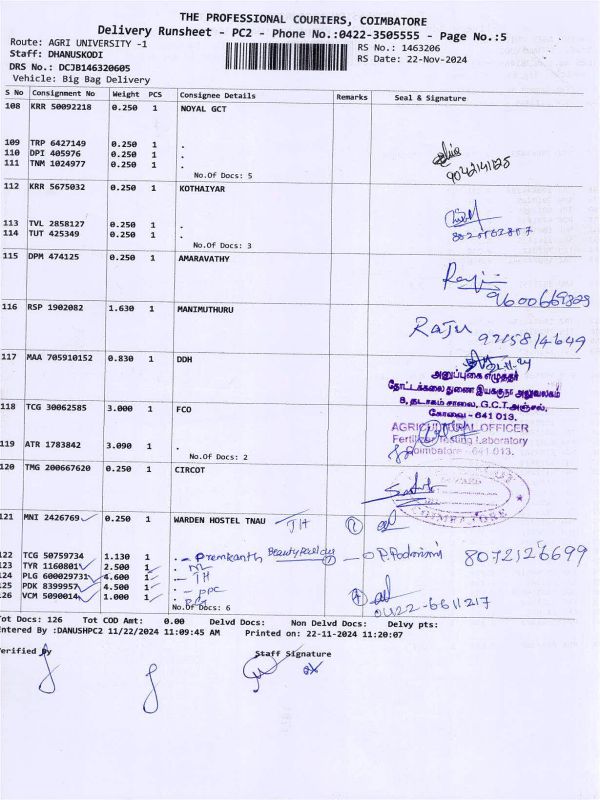 THE PROFESSIONAL COURIERS, COIMBATORE
Delivery Runsheet - PC2 - Phone No.:0422-3505555 - Page No.:5
Route: AGRI UNIVERSITY -1
RS No.: 1463206
Staff: DHANUSKODI
RS Date: 22-Nov-2024
DRS No.: DCJB146320605
Vehicle: Big Bag Delivery
S No Consignment No Weight PCS Consignee Details Remarks Seal & Signature
108 KRR 50092218 0.250 1 NOYAL GCT
109 TRP 6427149 0.250 1 .
110 DPI 405976 0.250 1 .
111 TNM 1024977 0.250 1 .
No.Of Docs: 5
112 KRR 5675032 0.250 1 KOTHAIYAR
113 TVL 2858127 0.250 1 .
114 TUT 425349 0.250 1 .
No.Of Docs: 3
115 DPM 474125 0.250 1 AMARAVATHY
9600669329
116 RSP 1902082 1.630 1 MANIMUTHURU
Raju
117 MAA 705910152 0.830 1 DDH
அனுப்புகை எழுத்தர்
தோட்டக்கலை துணை இயக்குநர் அலுவலகம்
8, தடாகம் சாலை, G.C.T.அஞ்சல்,
கோவை - 641 013.
118 TCG 30062585 3.000 1 FCO
AGRICULTURAL OFFICER
Fertilizer Testing Laboratory
Coimbatore - 641 013.
119 ATR 1783842 3.090 1 .
No.Of Docs: 2
120 TMG 200667620 0.250 1 CIRCOT
COIMBATORE
121 MNI 2426769 0.250 1 WARDEN HOSTEL TNAU JH
122 TCG 50759734 1.130 1 . - Premkanth 8072526699
123 TYR 1160801 2.500 1 .
124 PLG 600029731 4.600 1 . JH
125 PDK 8399957 4.500 1 . - PPC
126 VCM 5090014 1.000 1 .
No.Of Docs: 6
0422-6611217
Tot Docs: 126 Tot COD Amt: 0.00 Delvd Docs: Non Delvd Docs: Delvy pts:
Entered By :DANUSHPC2 11/22/2024 11:09:45 AM Printed on: 22-11-2024 11:20:07
Verified By Staff Signature